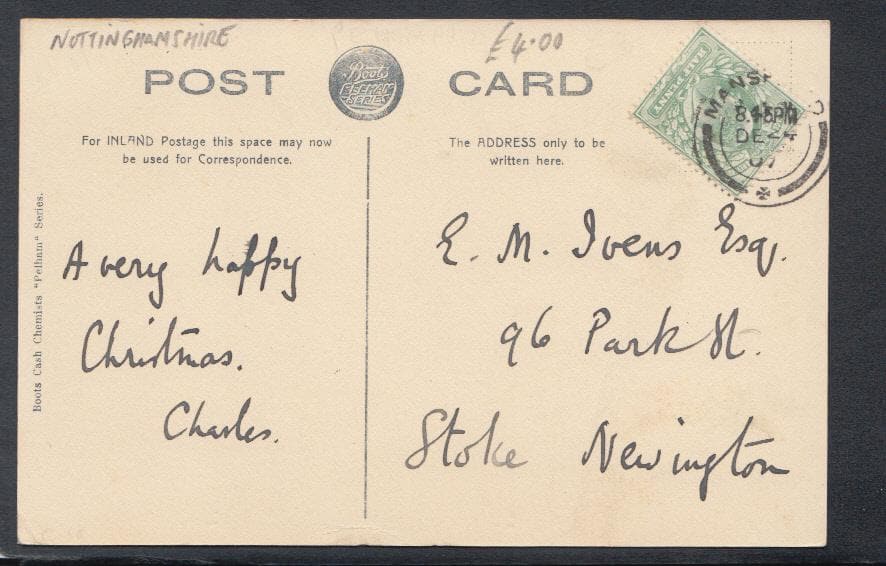 NOTTINGHAMSHIRE
£4.00
POST CARD
Boots
PELHAM
SERIES
For INLAND Postage this space may now
be used for Correspondence.
The ADDRESS only to be
written here.
HALFPENNY
DE 24
07
Boots Cash Chemists "Pelham" Series.
A very happy
Christmas.
Charles.
E. M. Ivens Esq.
96 Park St.
Stoke Newington